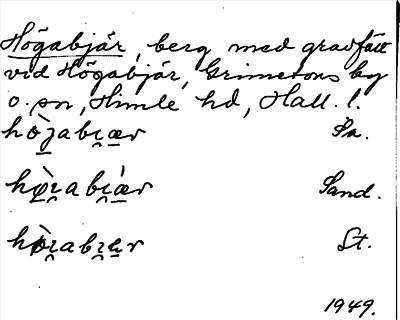 Högabjär, berg med gravfält
vid Högabjär, Grimetons by
o. sn, Himle hd, Hall. l.
hò̱jabi̯æ̱r Sa.
hø̱̀i̯abi̯ǽ̱r Sand.
hø̱̀i̯abi̯æ̱r St.
1949.